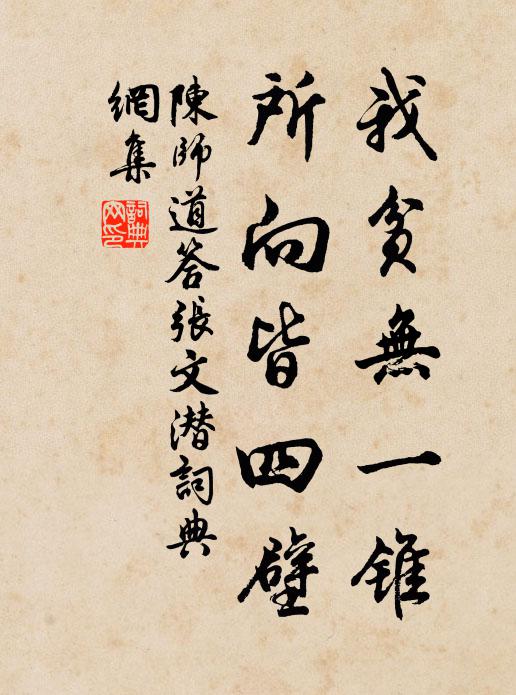 我貧無一錐
所向皆四壁
陳師道答張文潛詞典
網集
詞典
网印